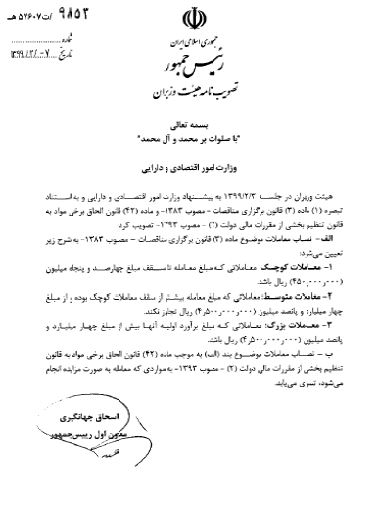 ۹۸۵۳ /ت۵۲۶۰۷ هـ
شماره
۱۳۹۹/۲/۰۷ تاریخ
جمهوری اسلامی ایران
رئیس جمهور
تصویب نامه هیئت وزیران
بسمه تعالی
"با صلوات بر محمد و آل محمد"
وزارت امور اقتصادی و دارایی
هیئت وزیران در جلسه ۱۳۹۹/۲/۳ به پیشنهاد وزارت امور اقتصادی و دارایی و به استناد
تبصره (۱) ماده (۳) قانون برگزاری مناقصات - مصوب ۱۳۸۳- و ماده (۴۲) قانون الحاق برخی مواد به
قانون تنظیم بخشی از مقررات مالی دولت (۲) - مصوب ۱۳۹۳- تصویب کرد
الف- نصاب معاملات موضوع ماده (۳) قانون برگزاری مناقصات - مصوب ۱۳۸۳- به شرح زیر
تعیین می‌شود:
۱- معاملات کوچک: معاملاتی که مبلغ معامله تا سقف مبلغ چهارصد و پنجاه میلیون
(۴۵۰٫۰۰۰٫۰۰۰) ریال باشد.
۲- معاملات متوسط: معاملاتی که مبلغ معامله بیشتر از سقف معاملات کوچک بوده و از مبلغ
چهار میلیارد و پانصد میلیون (۴٫۵۰۰٫۰۰۰٫۰۰۰) ریال تجاوز نکند.
۳- معاملات بزرگ: معاملاتی که مبلغ برآورد اولیه آنها بیش از مبلغ چهار میلیارد و
پانصد میلیون (۴٫۵۰۰٫۰۰۰٫۰۰۰) ریال باشد.
ب - نصاب معاملات موضوع بند (الف) به موجب ماده (۴۲) قانون الحاق برخی مواد به قانون
تنظیم بخشی از مقررات مالی دولت (۲) - مصوب ۱۳۹۳- به مواردی که معامله به صورت مزایده انجام
می‌شود، تسری می‌یابد.
اسحاق جهانگیری
معاون اول رییس‌جمهور